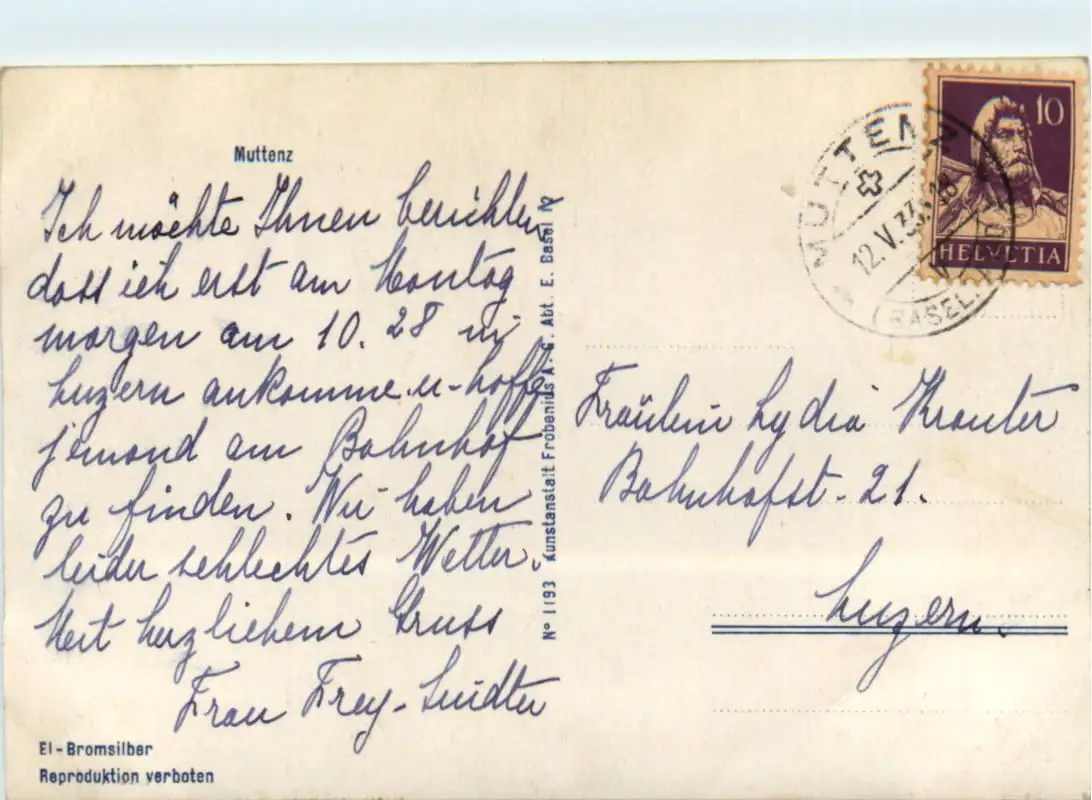 Muttenz
Ich möchte Ihnen berichten
dass ich erst am Montag
morgen am 10. 28 in
Luzern ankomme u- hoffe
jemand am Bahnhof
zu finden. Wir haben
leider schlechtes Wetter.
Mit herzlichem Gruss
Frau Frey-
El-Bromsilber
Reproduktion verboten
No 1193 Kunstanstalt Frobenius A. G. Abt. E. Basel N2
MUTTENZ
12.V.33.
(BASEL
10
HELVETIA
Fräulein Lydia Kronter
Bahnhofst- 21.
Luzern.